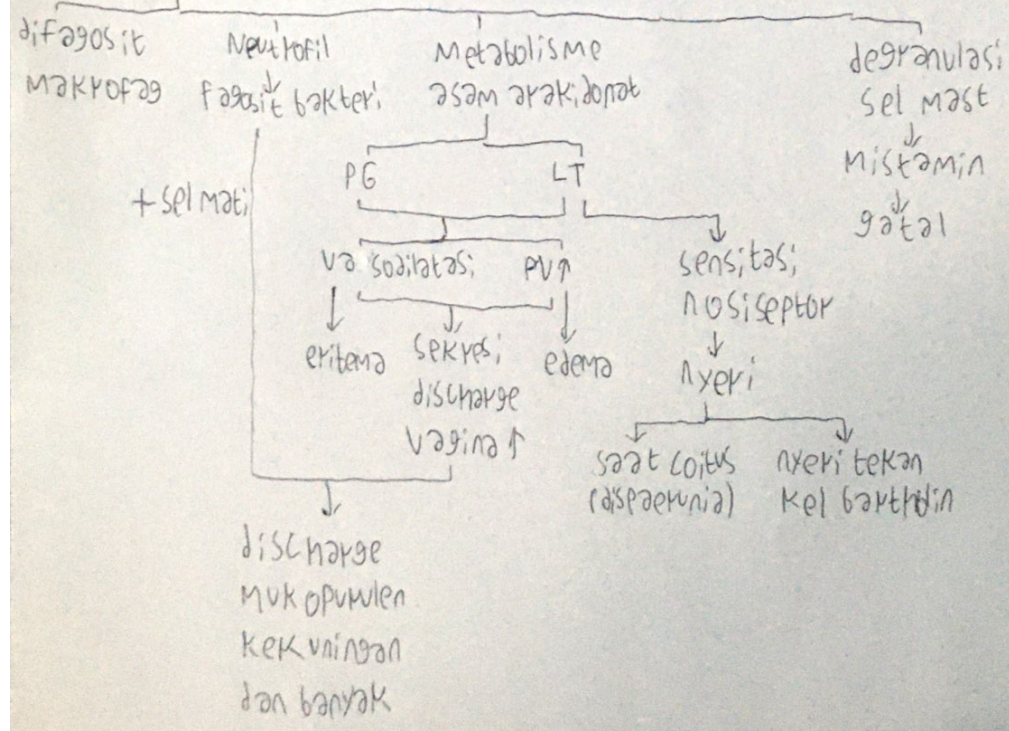 difagosit
makrofag
Neutrofil
fagosit bakteri
Metabolisme
asam arakidonat
degranulasi
sel mast
histamin
gatal
+ sel mati
PG
LT
vasodilatasi
PV↑
sensitasi
nosiseptor
nyeri
eritema
sekresi
discharge
vagina ↑
edema
saat coitus
(dispaerunia)
nyeri tekan
kel bartholin
discharge
mukopurulen
kekuningan
dan banyak